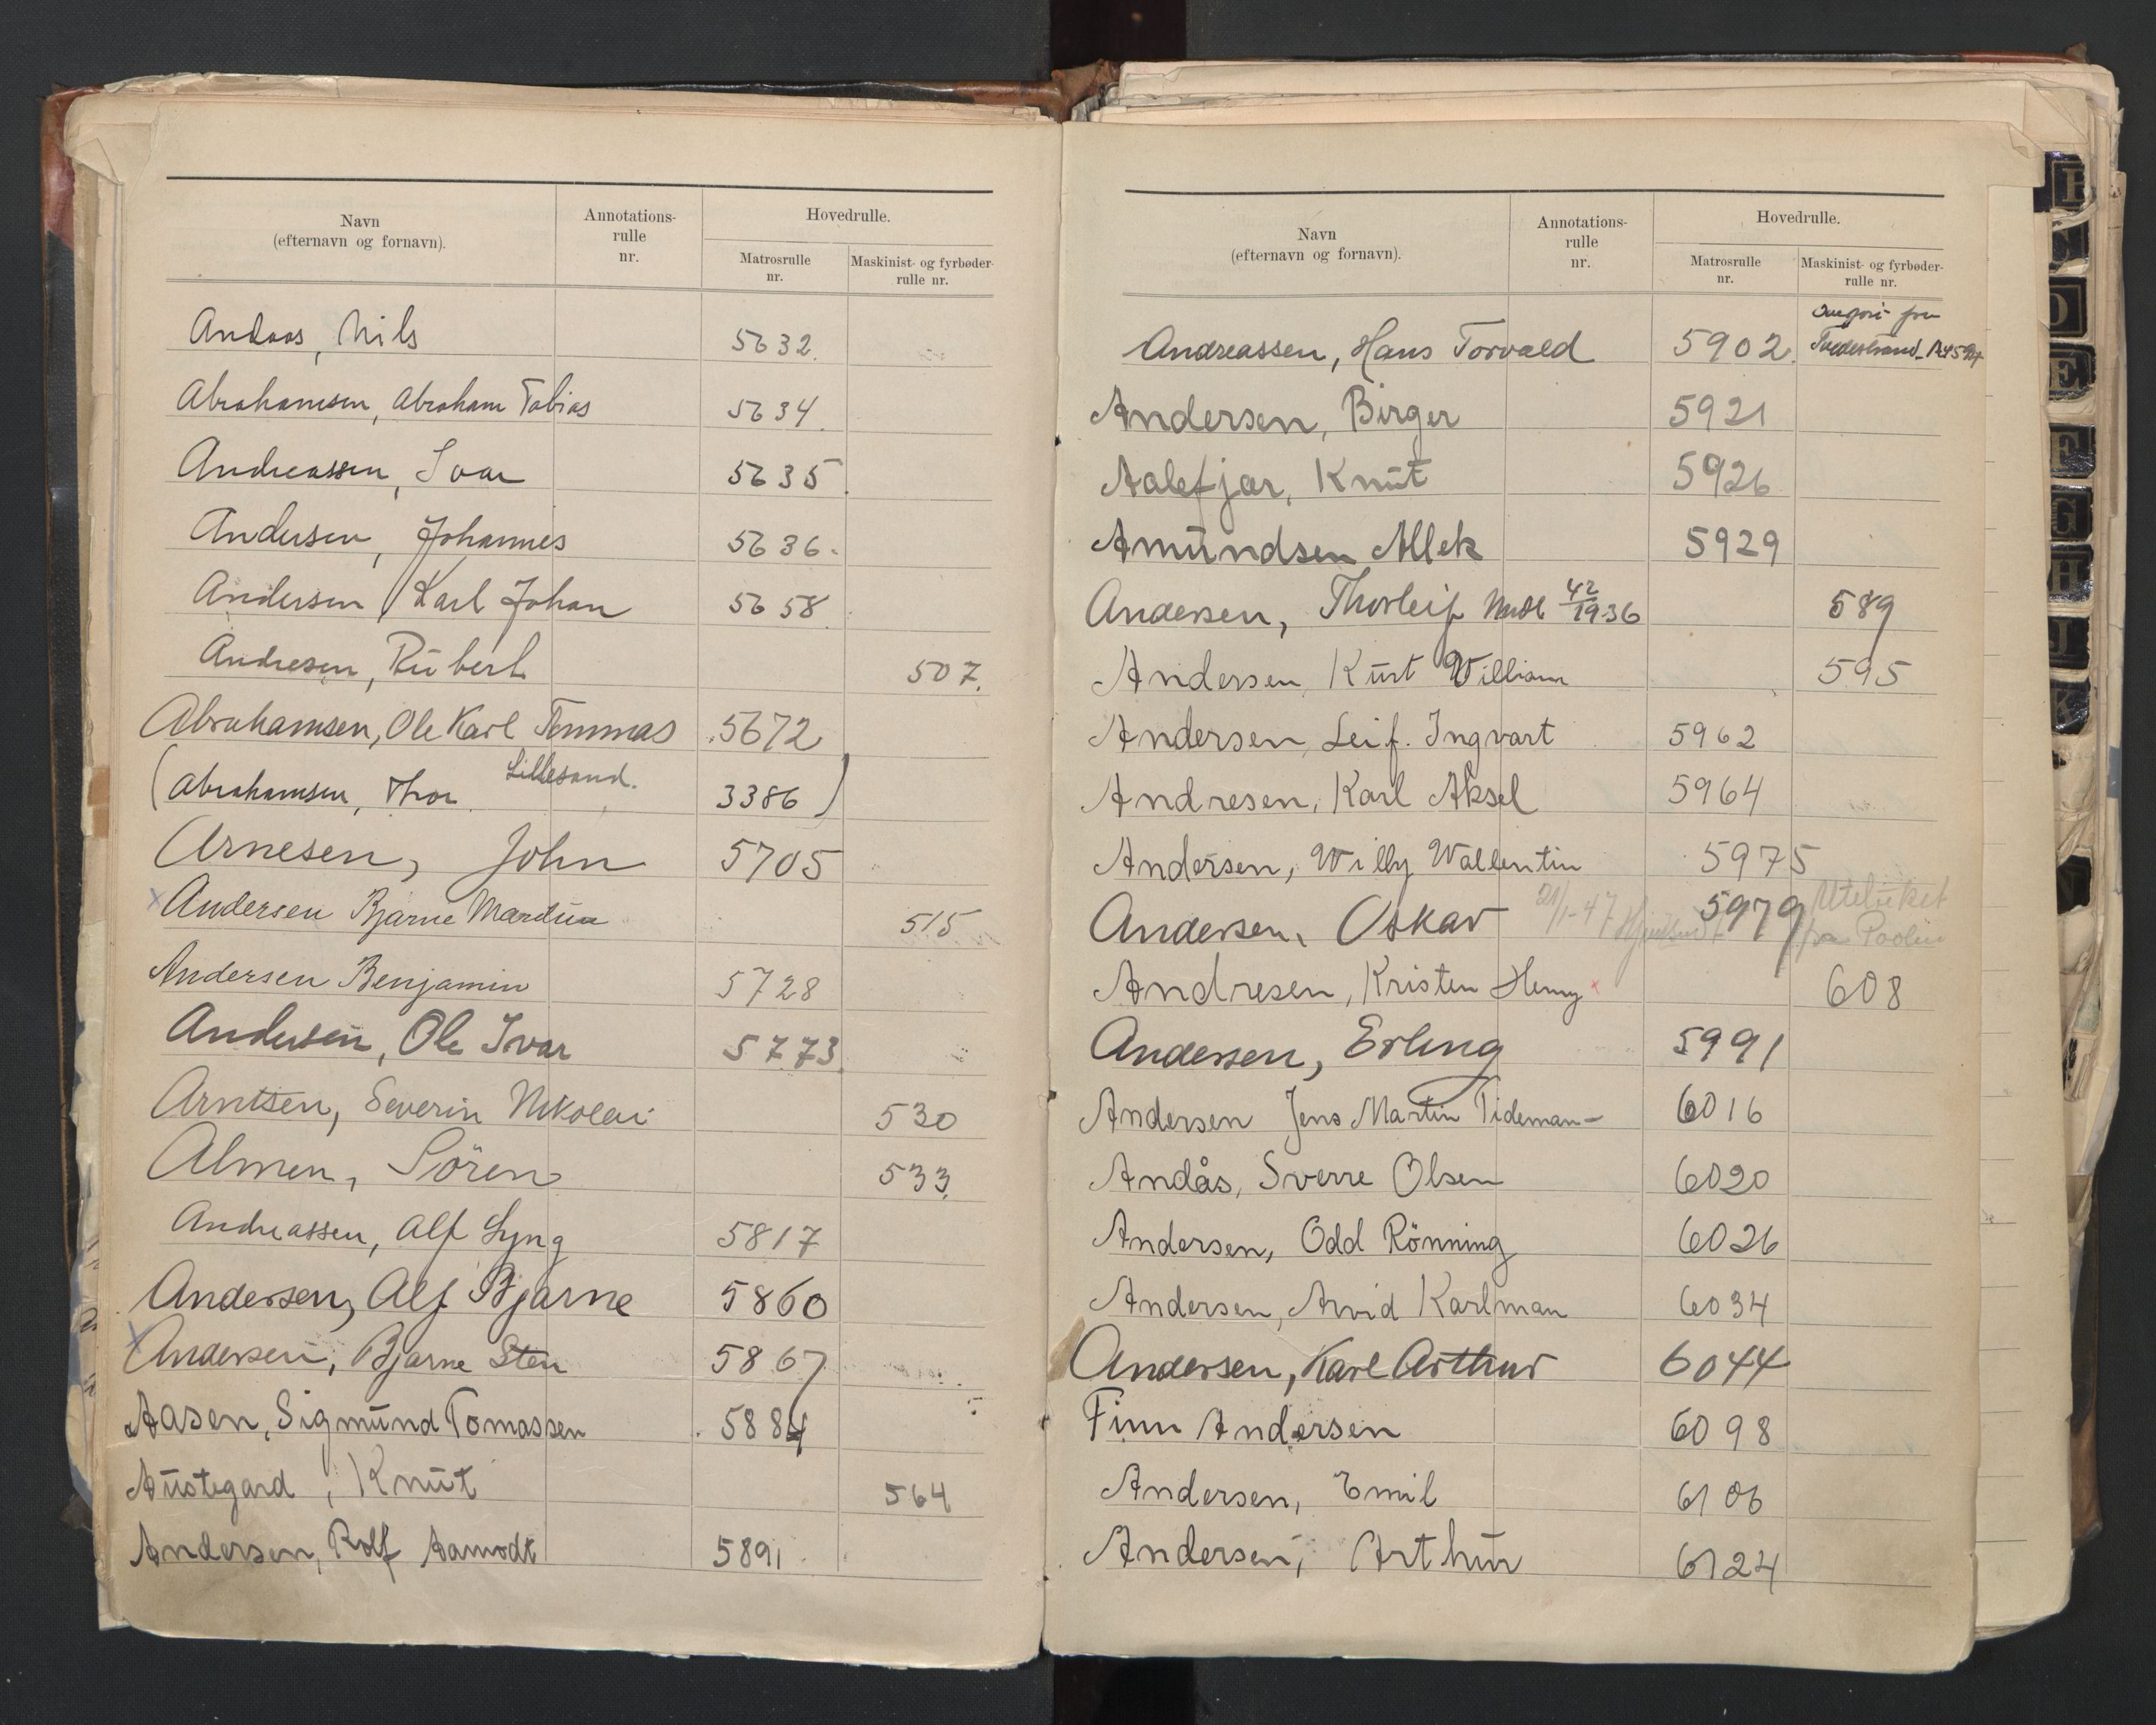 Navn
(efternavn og fornavn).
Annotations-
rulle
nr.
Hovedrulle.
Matrosrulle
nr.
Maskinist- og fyrbøder-
rulle nr.
Andaas, Nils 5632.
Abrahamsen, Abraham Tobias 5634.
Andreassen, Ivar 5635.
Andersen, Johannes 5636.
Andersen, Karl Johan 5658.
Andresen, Rübert 507.
Abrahamsen, Ole Karl Tommas 5672
(Abrahamsen, Thor Lillesand. 3386)
Arnesen, John 5705
x Andersen Bjarne 515
Andersen Benjamin 5728
Andersen, Ole Ivar 5773.
Arntsen, Severin Nikolai 530
Almen, Sören 533.
Andreassen, Alf Lyng 5817
Andersen, Alf Bjarne 5860
x Andersen, Bjarne Sten 5867
Aasen, Sigmünd Tomassen 5884
Aüstegard, Knüt 564
Andersen, Rolf Aamodt 5891
Navn
(efternavn og fornavn).
Annotations-
rulle
nr.
Hovedrulle.
Matrosrulle
nr.
Maskinist- og fyrbøder-
rulle nr.
Andreassen, Hans Torvald 5902. Tvedestrand
Andersen, Birger 5921
Aalefjær, Knüt 5926
Amündsen Allek 5929
Andersen, Thorleif 42/1936 589
Andersen, Kürt William 595
Andersen, Leif. Ingvart 5962
Andresen, Karl Aksel 5964
Andersen, Willy Wallentin 5975
Andersen, Oskar 5979
Andresen, Kristen Henry 608
Andersen, Erling 5991
Andersen Jens Martin Tideman- 6016
Andås, Sverre Olsen 6020
Andersen, Odd Rönning 6026
Andersen, Arvid Karlman 6034
Andersen, Karl Arthur 6044
Finn Andersen 6098
Andersen, Emil 6106
Andersen, Arthür 6124